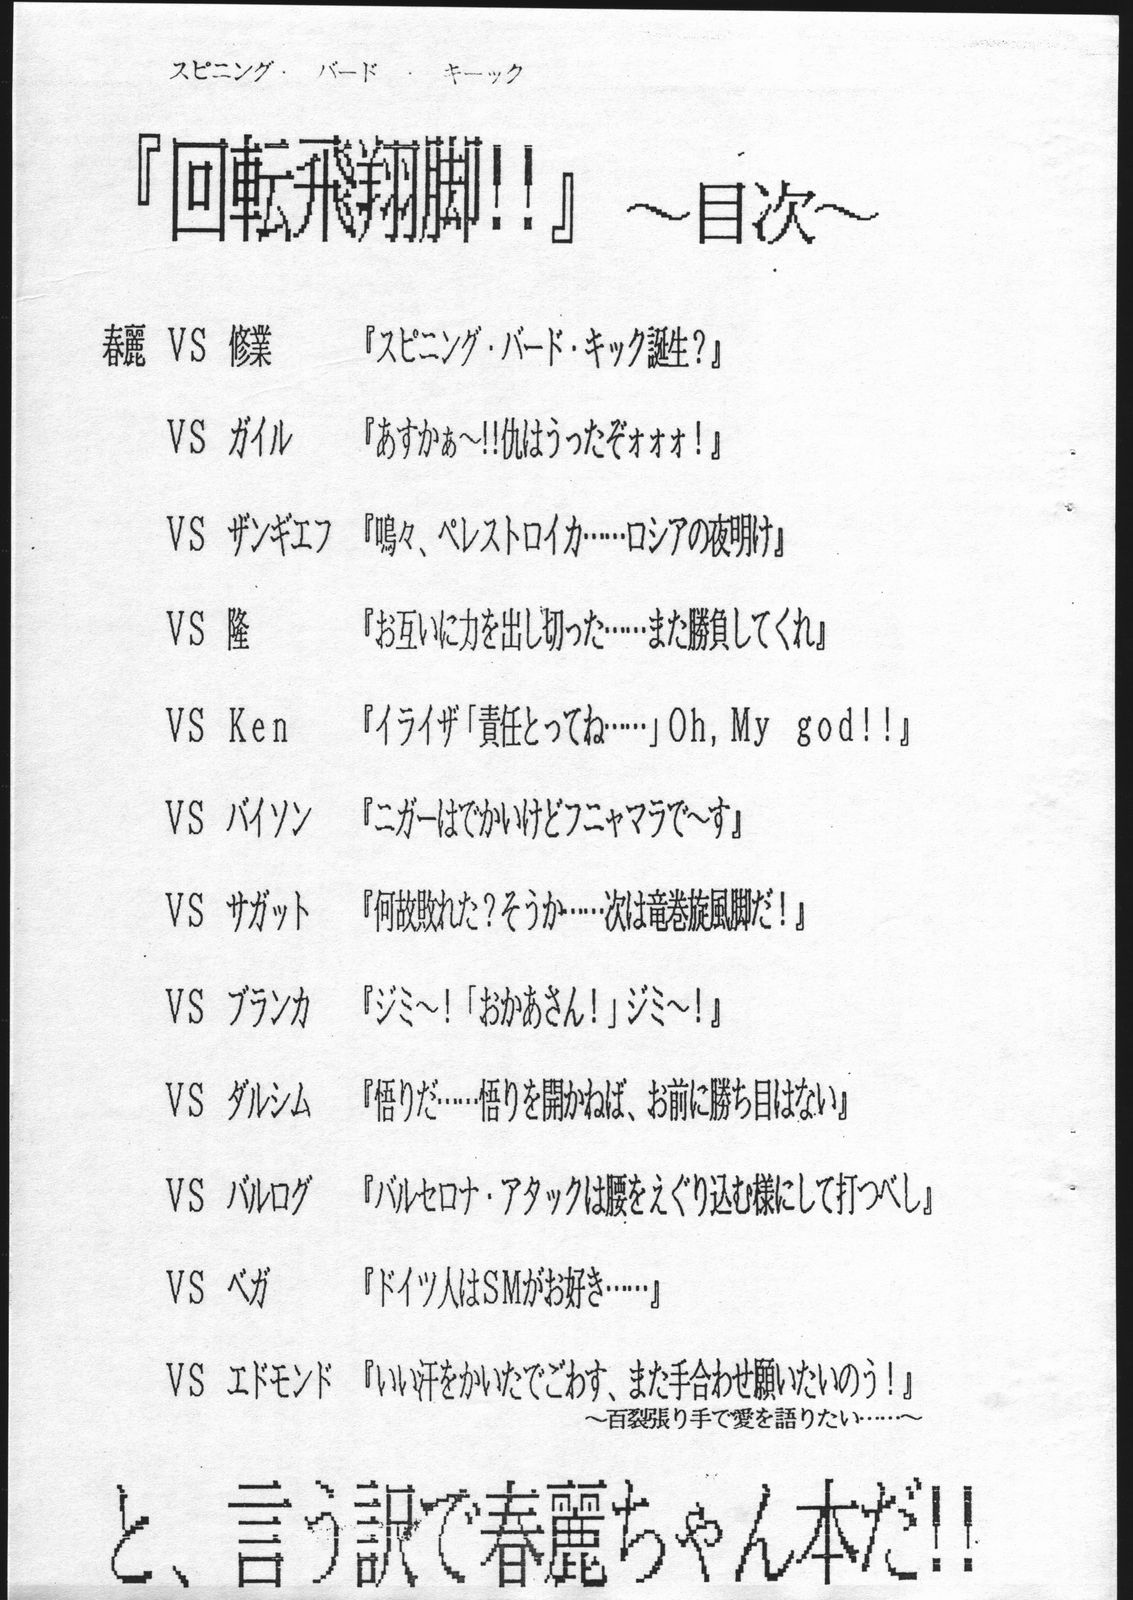 スピニング・ バード ・ キーック
『回転飛翔脚!!』 ～目次～
春麗 VS 修業 『スピニング・バード・キック誕生？』
VS ガイル 『あすかぁ～!!仇はうったぞォォォ！』
VS ザンギエフ 『嗚々、ペレストロイカ……ロシアの夜明け』
VS 隆 『お互いに力を出し切った……また勝負してくれ』
VS Ken 『イライザ「責任とってね……」Oh, My god!!』
VS バイソン 『ニガーはでかいけどフニャマラで～す』
VS サガット 『何故敗れた？そうか……次は竜巻旋風脚だ！』
VS ブランカ 『ジミ～！「おかあさん！」ジミ～！』
VS ダルシム 『悟りだ……悟りを開かねば、お前に勝ち目はない』
VS バルログ 『バルセロナ・アタックは腰をえぐり込む様にして打つべし』
VS ベガ 『ドイツ人はSMがお好き……』
VS エドモンド 『いい汗をかいたでごわす、また手合わせ願いたいのう！』
～百裂張り手で愛を語りたい……～
と、言う訳で春麗ちゃん本だ!!